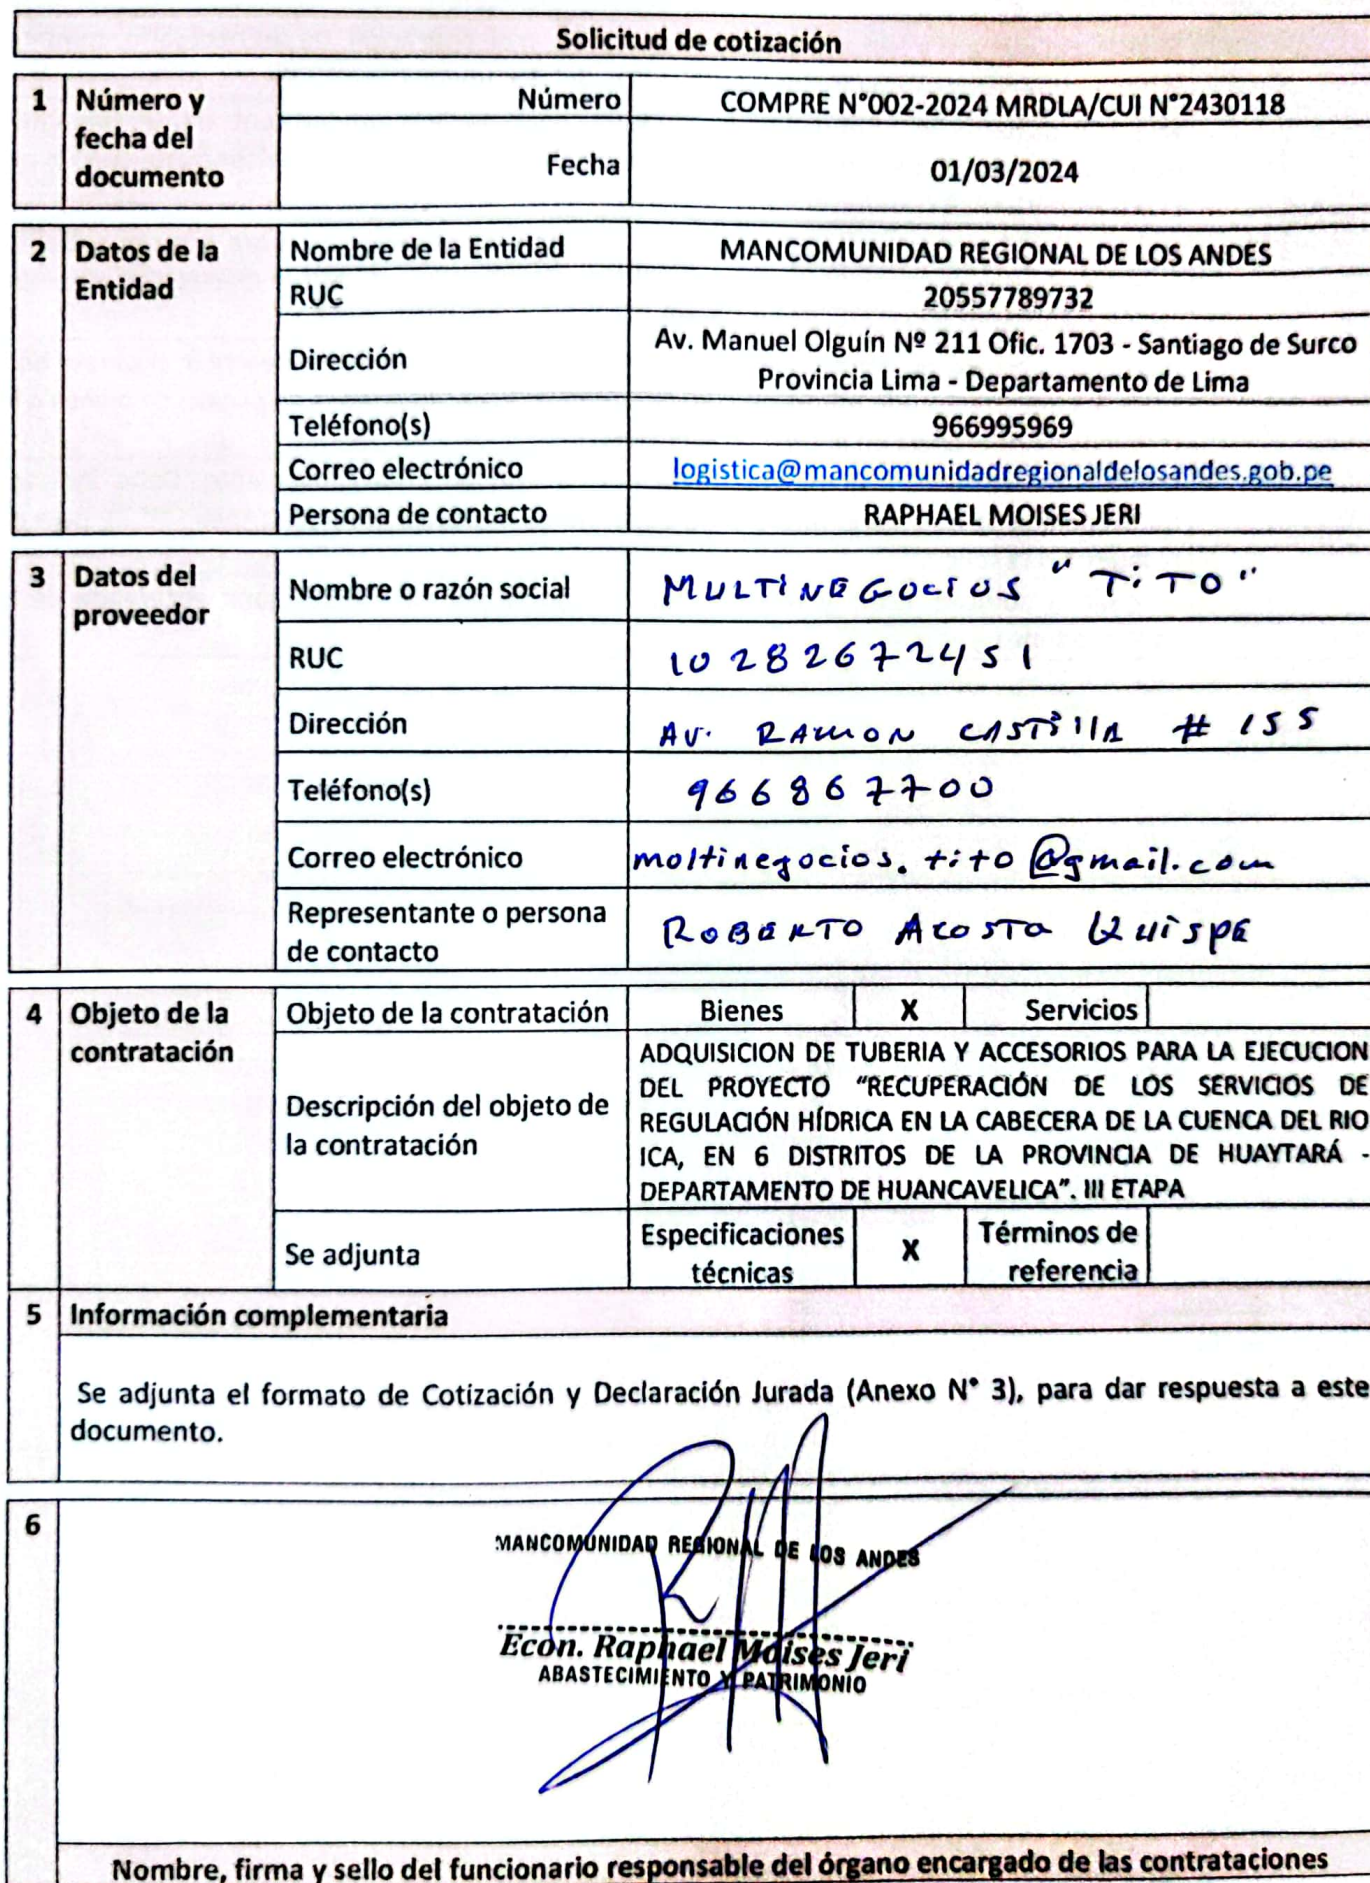 Solicitud de cotización
1 Número y fecha del documento
Número COMPRE N°002-2024 MRDLA/CUI N°2430118
Fecha 01/03/2024
2 Datos de la Entidad
Nombre de la Entidad MANCOMUNIDAD REGIONAL DE LOS ANDES
RUC 20557789732
Dirección Av. Manuel Olguín Nº 211 Ofic. 1703 - Santiago de Surco
Provincia Lima - Departamento de Lima
Teléfono(s) 966995969
Correo electrónico logistica@mancomunidadregionaldelosandes.gob.pe
Persona de contacto RAPHAEL MOISES JERI
3 Datos del proveedor
Nombre o razón social MULTINEGOCIOS "TiTO"
RUC 10282672451
Dirección AV. RAMON CASTillA # 155
Teléfono(s) 966867700
Correo electrónico moltinegocios.tito@gmail.com
Representante o persona de contacto ROBERTO ACOSTA QUISPE
4 Objeto de la contratación
Objeto de la contratación Bienes X Servicios
Descripción del objeto de la contratación
ADQUISICION DE TUBERIA Y ACCESORIOS PARA LA EJECUCION
DEL PROYECTO “RECUPERACIÓN DE LOS SERVICIOS DE
REGULACIÓN HÍDRICA EN LA CABECERA DE LA CUENCA DEL RIO
ICA, EN 6 DISTRITOS DE LA PROVINCIA DE HUAYTARÁ -
DEPARTAMENTO DE HUANCAVELICA”. III ETAPA
Se adjunta Especificaciones técnicas X Términos de referencia
5 Información complementaria
Se adjunta el formato de Cotización y Declaración Jurada (Anexo N° 3), para dar respuesta a este
documento.
6
MANCOMUNIDAD REGIONAL DE LOS ANDES
Econ. Raphael Moises Jeri
ABASTECIMIENTO Y PATRIMONIO
Nombre, firma y sello del funcionario responsable del órgano encargado de las contrataciones